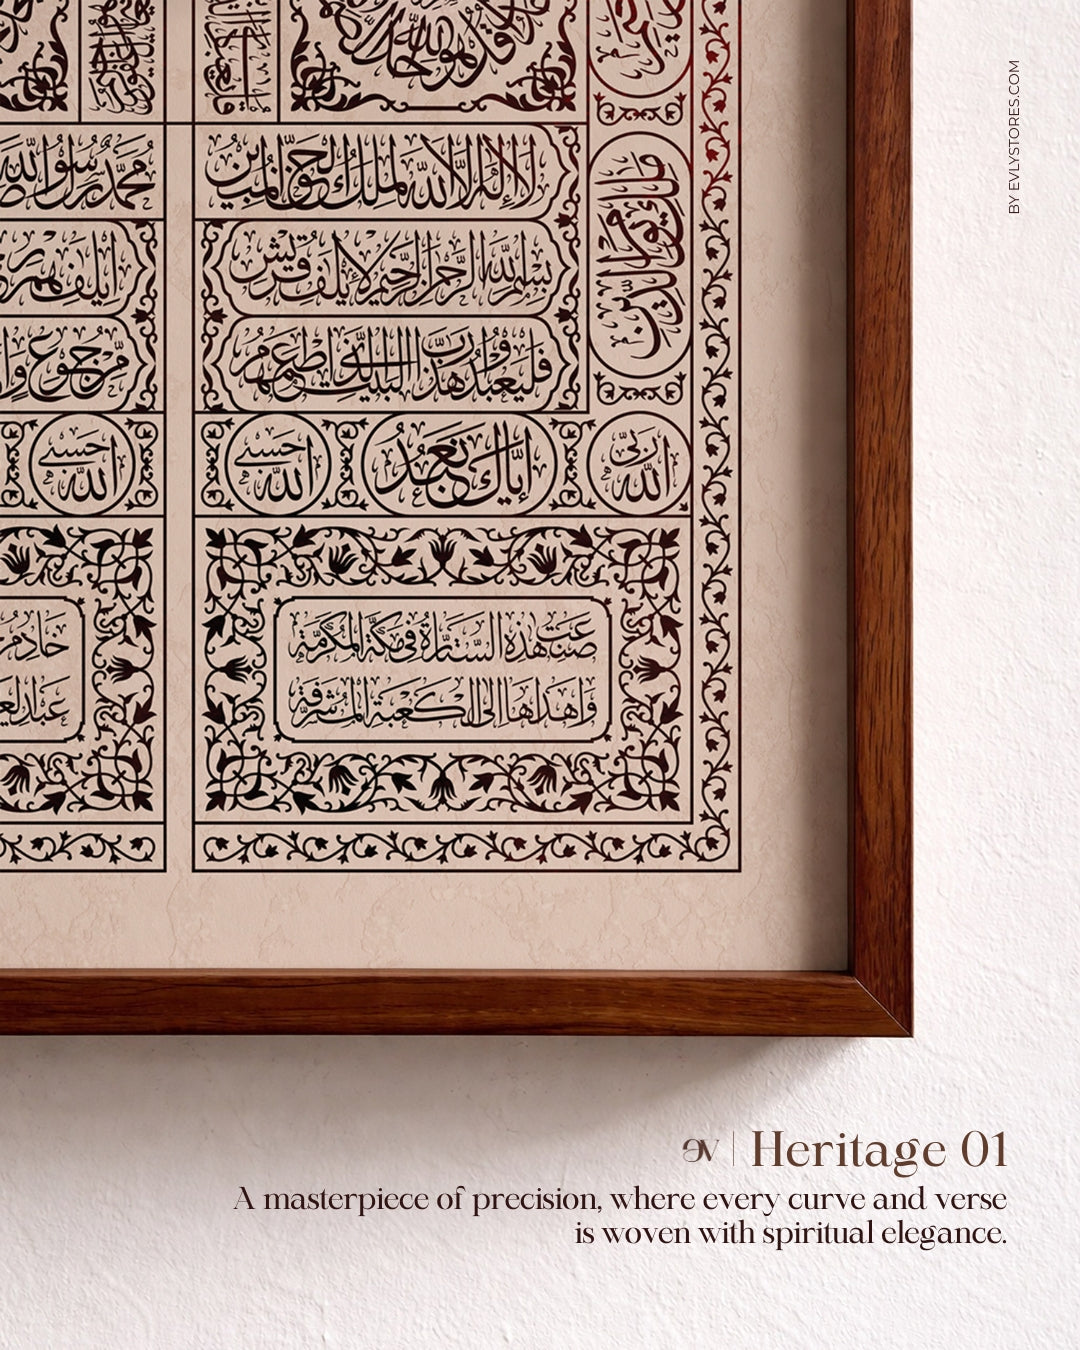 قل هو الله أحد
محمد رسول الله
لا إله إلا الله الملك الحق المبين
مالك يوم الدين
إيلافهم
بسم الله الرحمن الرحيم لإيلاف قريش
جوع
فليعبدوا رب هذا البيت الذي أطعمهم
حسبي الله
حسبي الله
إياك نعبد
الله ربي
خادم
صنعت هذه الستارة في مكة المكرمة
وأهداها إلى الكعبة المشرفة
BY EVLYSTORES.COM
ev | Heritage 01
A masterpiece of precision, where every curve and verse
is woven with spiritual elegance.